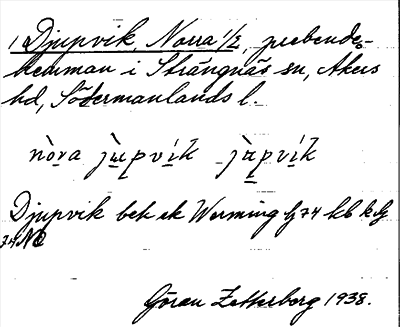 1 Djupvik, Norra 1/2, prebende-
hemman i Strängnäs sn, Åkers
hd, Södermanlands l.
nò̱va jù̱pví̱k jù̱pví̱k
Djupvik bek ek Werming 74 kb
74 NO
Göran Zetterberg 1938.